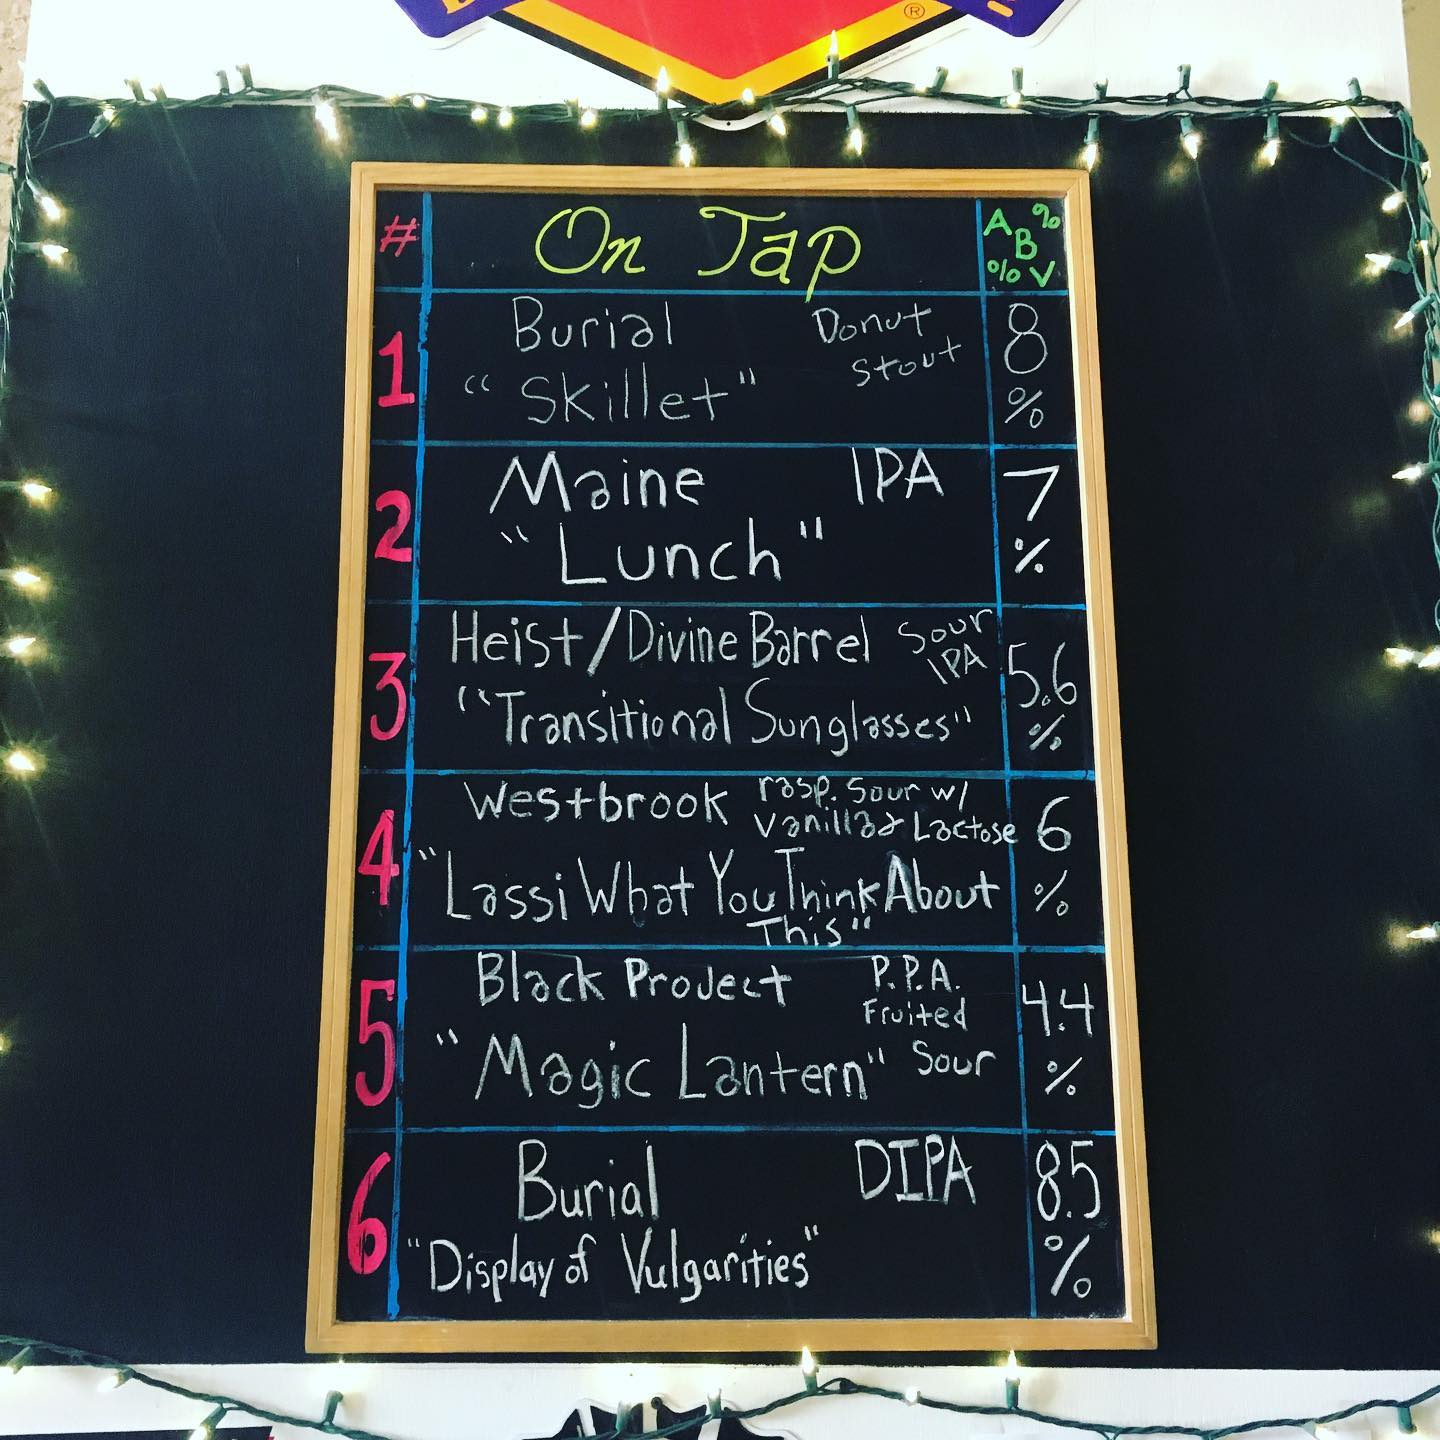 ®
# On Tap A B V % %
1 Burial Donut Stout 8 %
"Skillet"
2 Maine IPA 7 %
"Lunch"
3 Heist/Divine Barrel Sour IPA 5.6 %
"Transitional Sunglasses"
4 Westbrook rasp. Sour w/ Vanilla & Lactose 6 %
"Lassi What You Think About This"
5 Black Project P.P.A. Fruited Sour 4.4 %
"Magic Lantern"
6 Burial DIPA 8.5 %
"Display of Vulgarities"